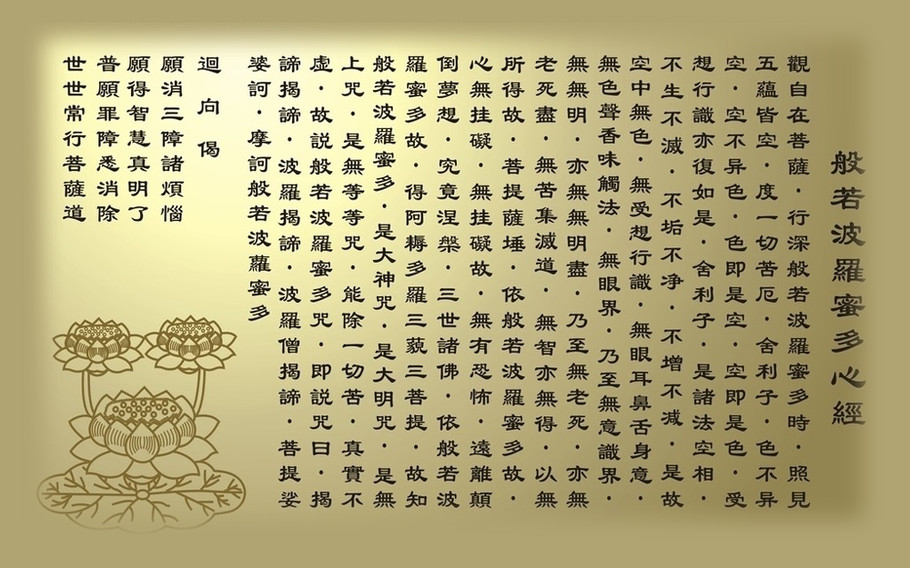 般若波羅蜜多心經
觀自在菩薩・行深般若波羅蜜多時・照見
五蘊皆空・度一切苦厄・舍利子・色不异
空・空不异色・色即是空・空即是色・受
想行識亦復如是・舍利子・是諸法空相・
不生不滅・不垢不净・不增不减・是故
空中無色・無受想行識・無眼耳鼻舌身意・
無色聲香味觸法・無眼界・乃至無意識界・
無無明・亦無無明盡・乃至無老死・亦無
老死盡・無苦集滅道・無智亦無得・以無
所得故・菩提薩埵・依般若波羅蜜多故・
心無挂礙・無挂礙故・無有恐怖・遠離顛
倒夢想・究竟涅槃・三世諸佛・依般若波
羅蜜多故・得阿耨多羅三藐三菩提・故知
般若波羅蜜多・是大神咒・是大明咒・是無
上咒・是無等等咒・能除一切苦・真實不
虛・故説般若波羅蜜多咒・即説咒曰・揭
諦揭諦・波羅揭諦・波羅僧揭諦・菩提娑
婆訶・摩訶般若波蘿蜜多
迴向偈
願消三障諸煩惱
願得智慧真明了
普願罪障悉消除
世世常行菩薩道